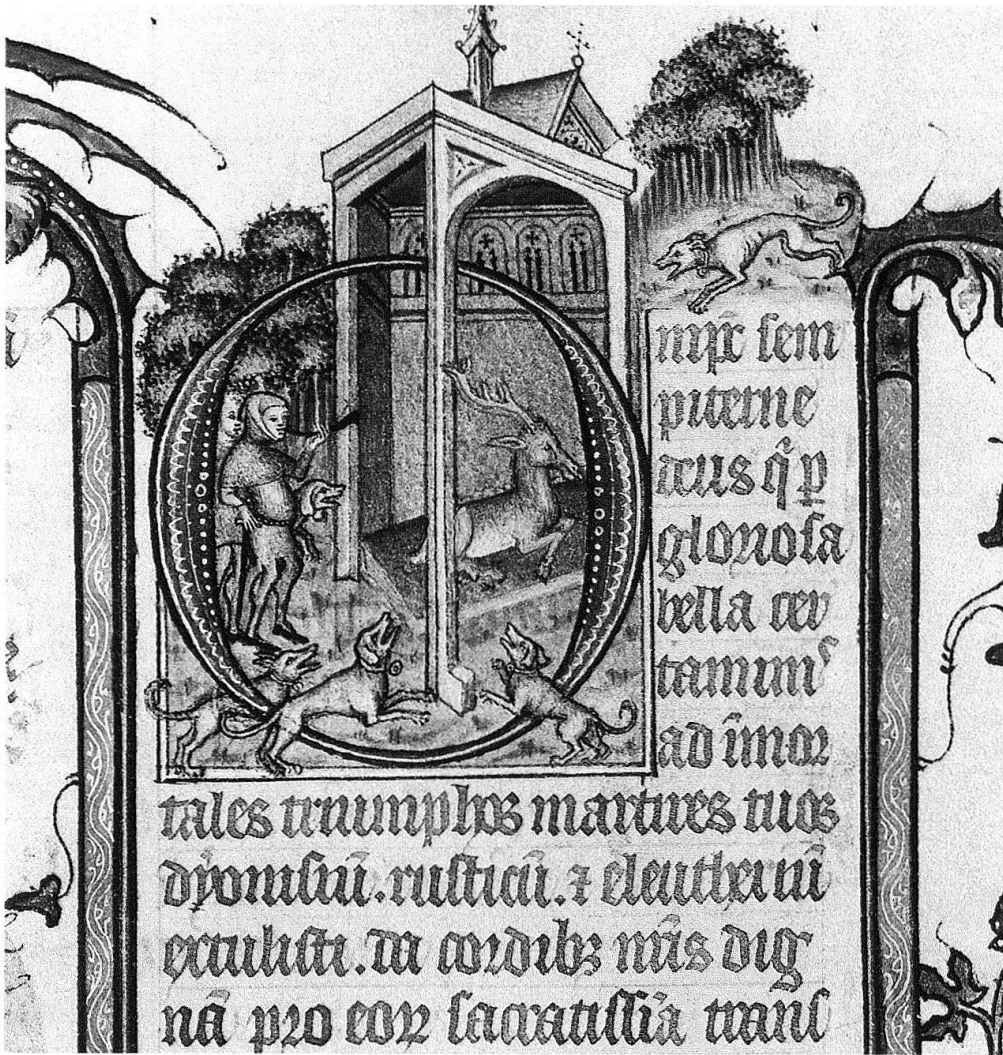 Omp̄s sem
piterne
deus q̇ ꝑ
gloriosa
bella cer
taminˢ
ad īmor
tales triumphos martires tuos
dyonisiū. rusticū. ⁊ eleutheriū
extulisti. da cordibꝫ nr̄is dig
nā pro eoꝝ sacratissīā trans